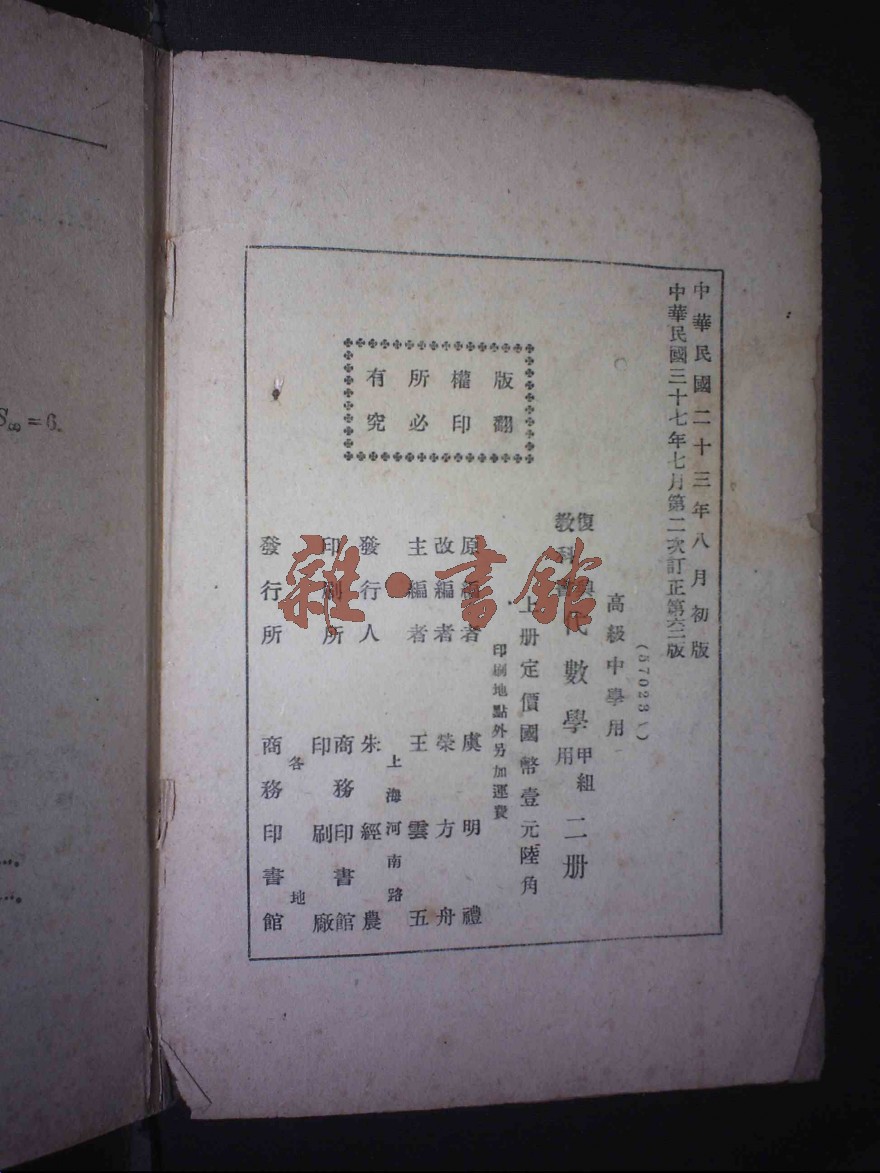 中華民國二十三年八月初版
中華民國三十七年七月第二次訂正第六二版
(57023)
高級中學用
復興教科書 代數學 甲組用 二册
上册定價國幣壹元陸角
印刷地點外另加運費
版權所有
翻印必究
原編者 虞明禮
改編者 榮方舟
主編者 王雲五
上海河南路
發行人 朱經農
印刷所 商務印書館印刷廠
各地
發行所 商務印書館
雜·書館
S∞ = 6.